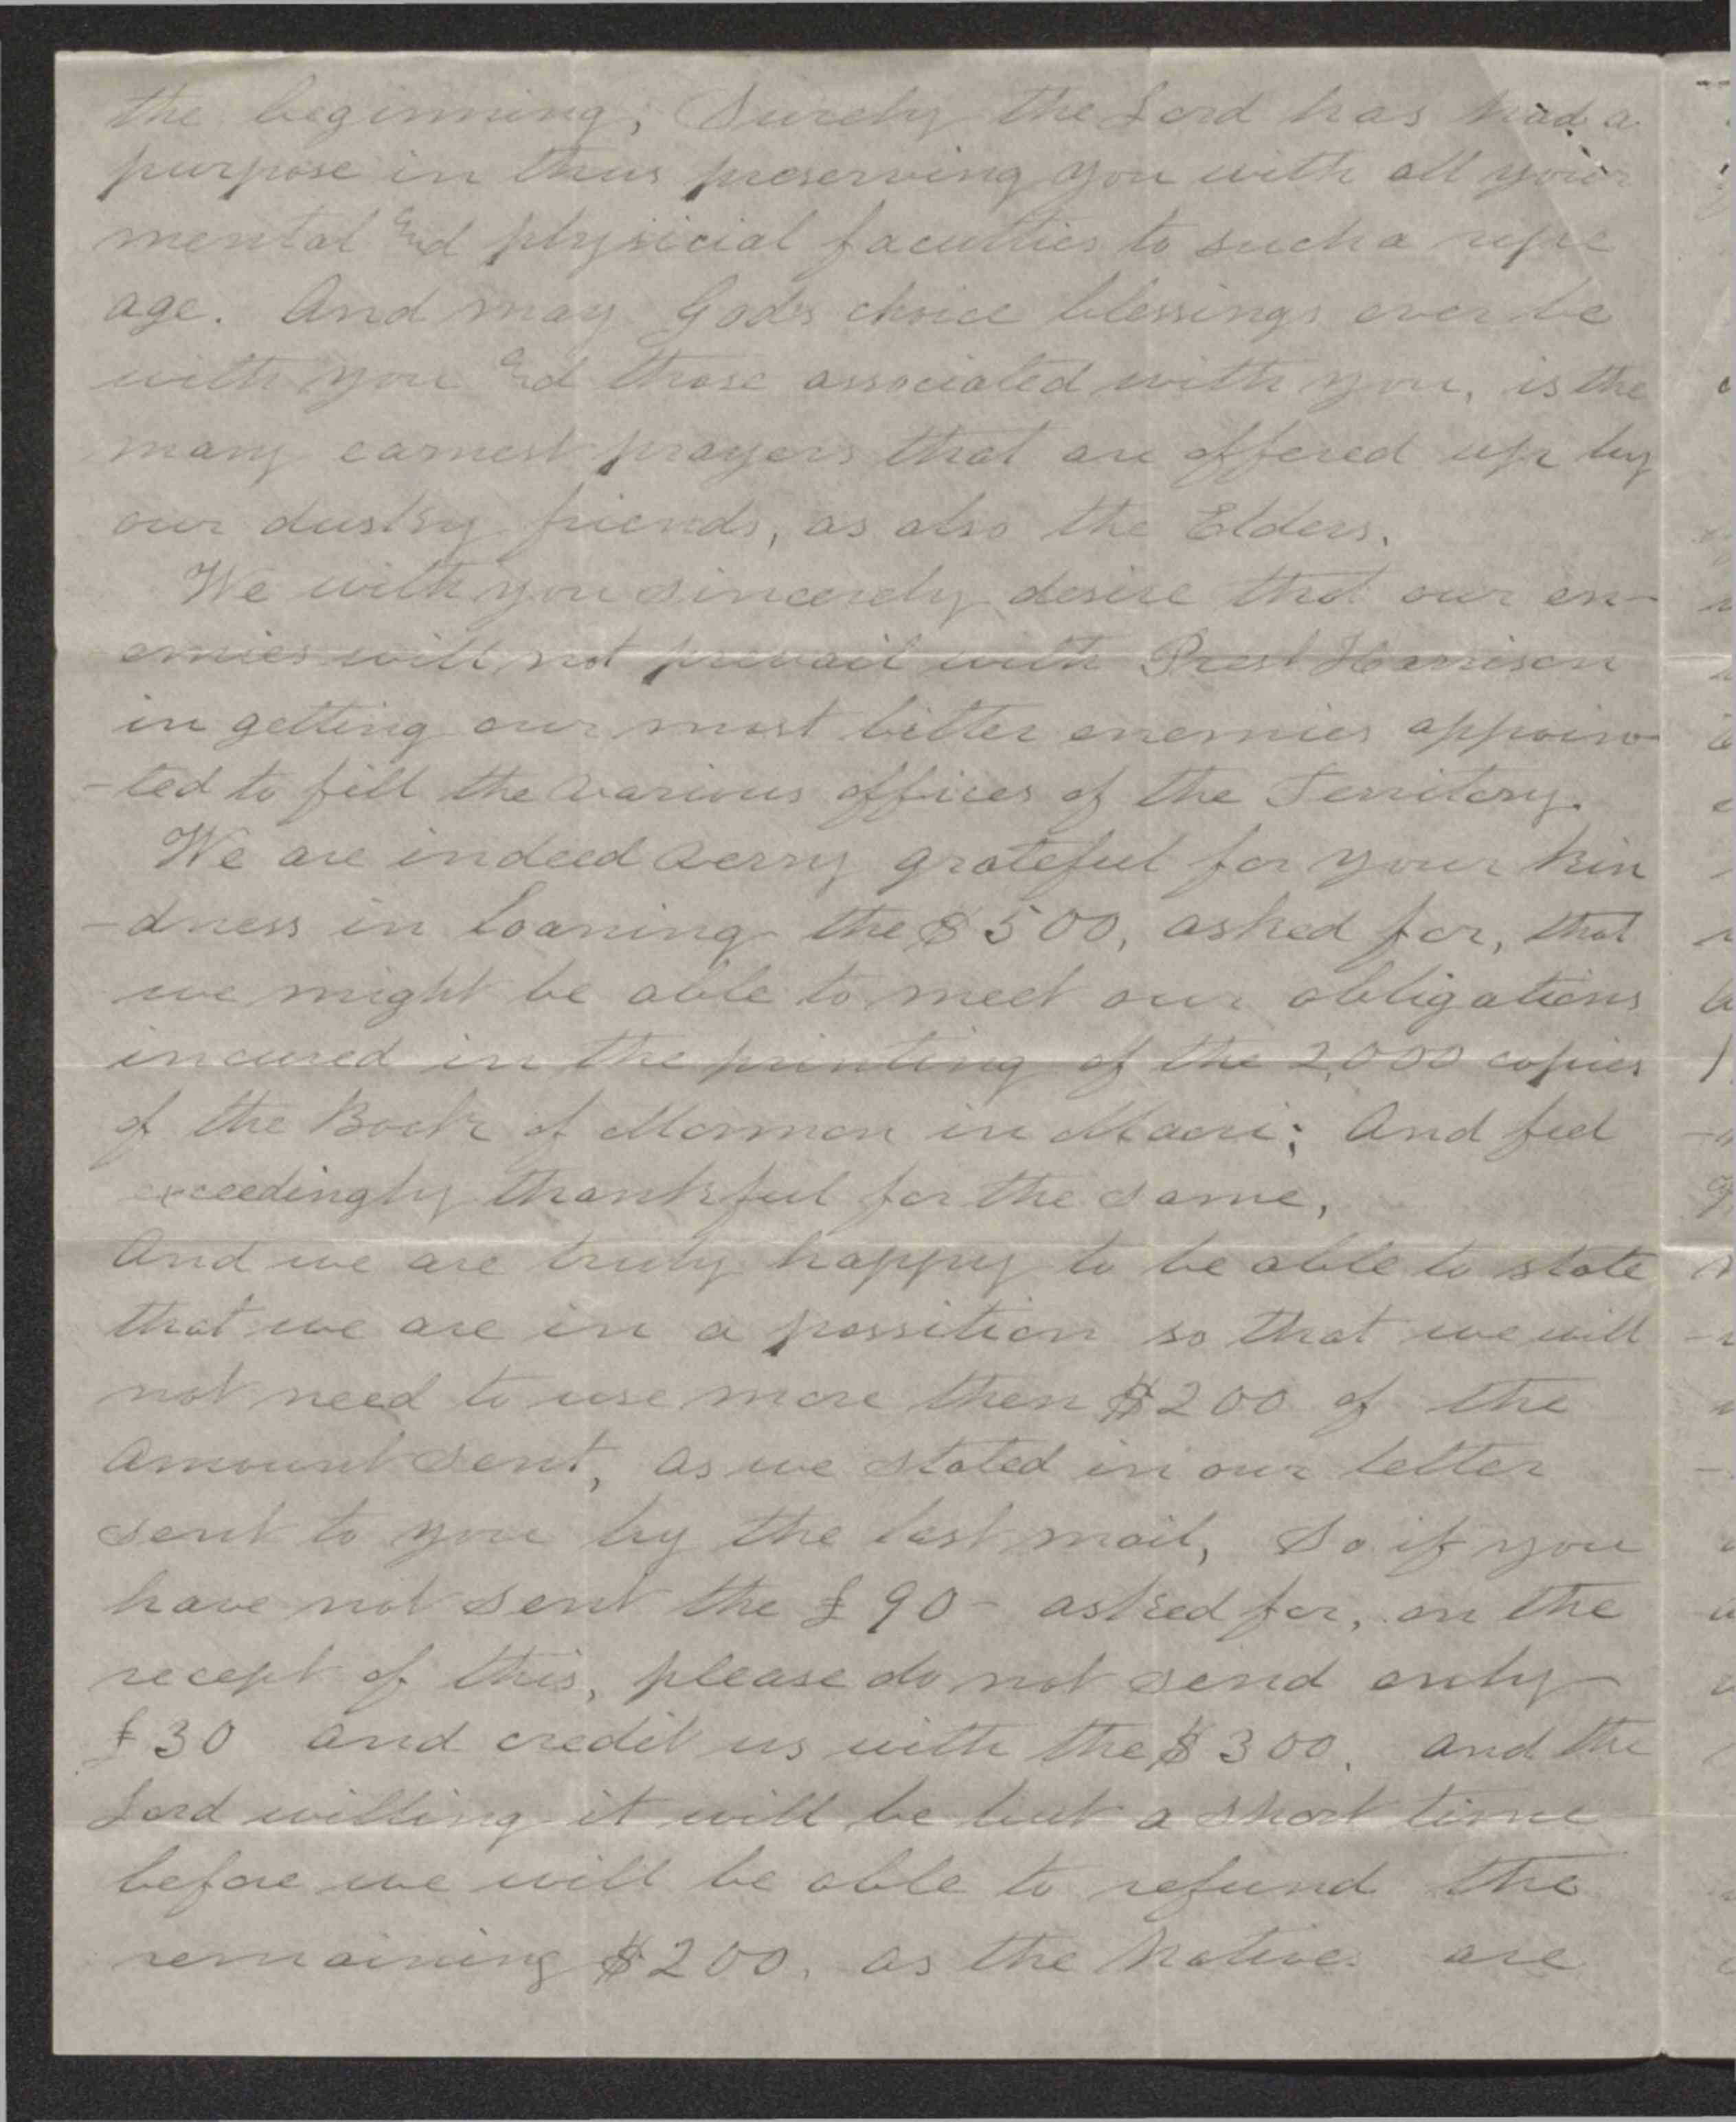 the beginning; Surely the Lord has had a
purpose in thus preserving you with all your
mental and physicial faculties to such a ripe
age. And may God's choice blessings ever be
with you and those associated with you, is the
many earnest prayers that are offered up by
our dustsy friends, as also the Elders.
We with you sincerely desire that our en-
emies will not prevail with Prest Harrison
in getting our most bitter enemies appoin-
-ted to fill the various offices of the Territory.
We are indeed verry grateful for your kin
-dness in loaning the $500, asked for, that
we might be able to meet our obligations
incured in the printing of the 2,000 copies
of the Book of Mormon in Maori; And feel
exceedingly thankful for the same,
And we are truly happy to be able to state
that we are in a possition so that we will
not need to use more then $200 of the
amount sent, as we stated in our letter
sent to you by the last mail, So if you
have not sent the £90- asked for, on the
recept of this, please do not send only
£30 and credit us with the $300. and the
Lord willing it will be but a short time
before we will be able to refund the
remaining $200. as the Natives are